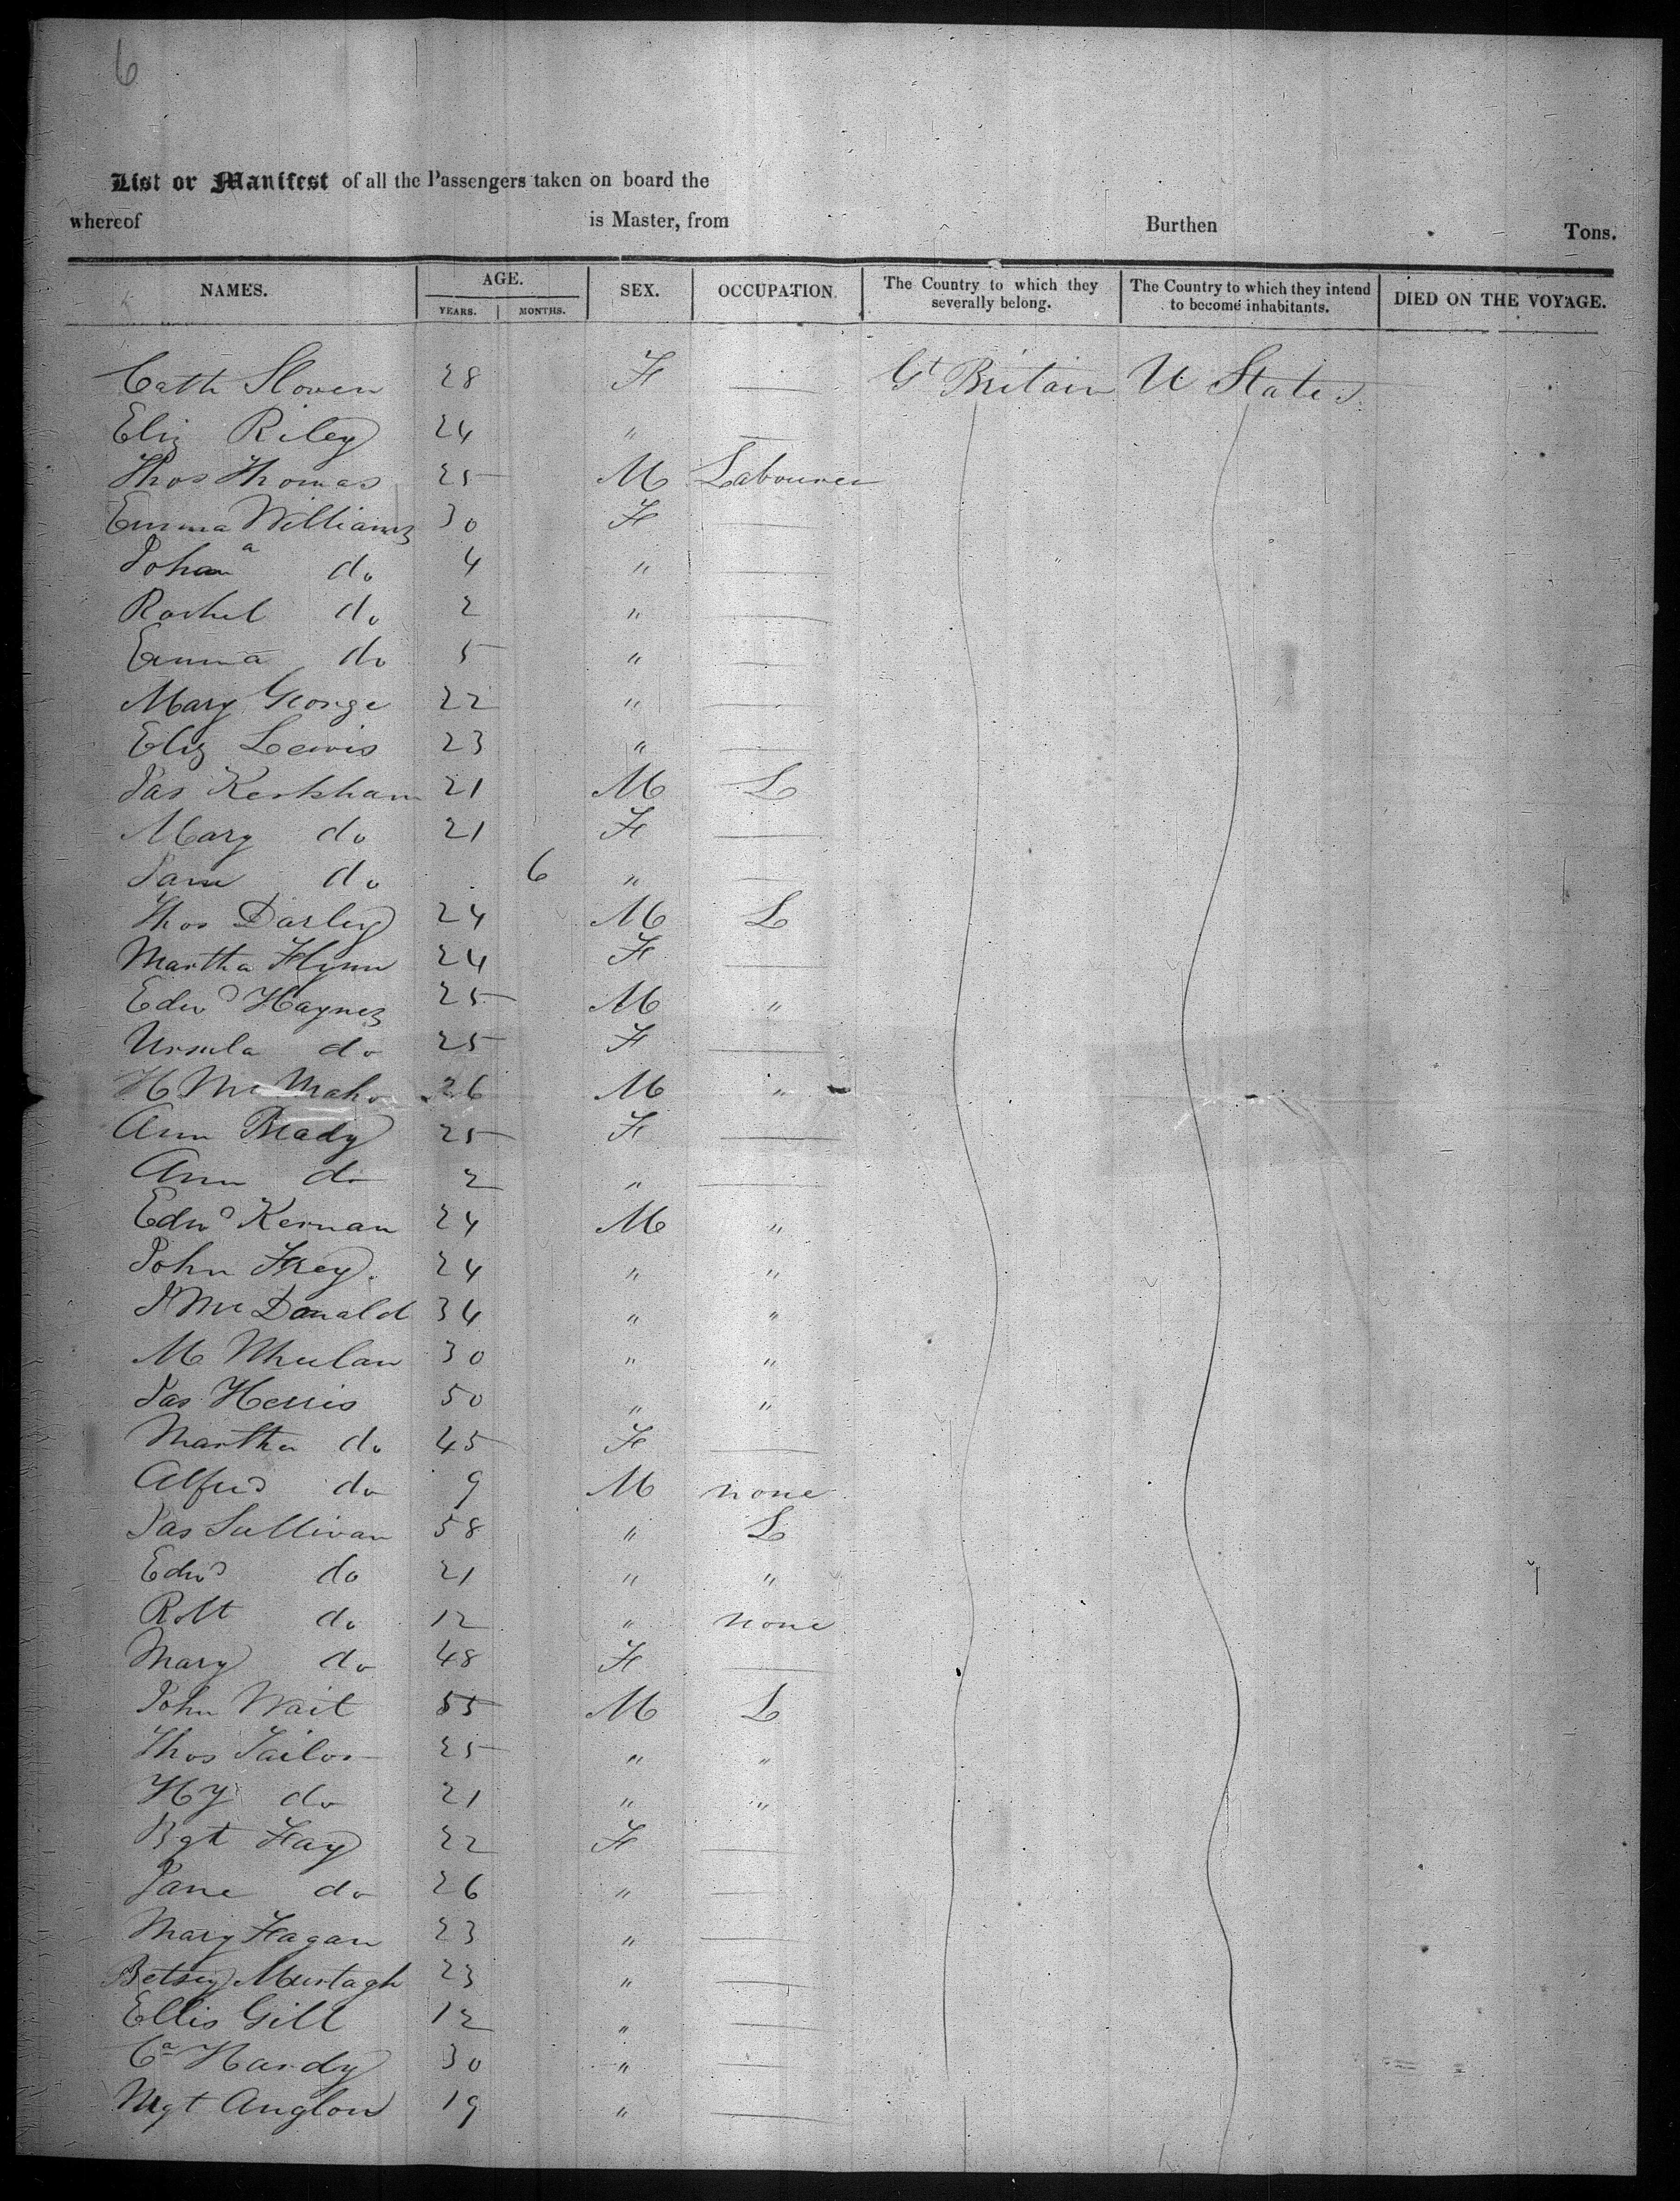 6
List or Manifest of all the Passengers taken on board the
whereof is Master, from Burthen Tons.
NAMES. AGE. SEX. OCCUPATION. The Country to which they severally belong. The Country to which they intend to become inhabitants. DIED ON THE VOYAGE.
YEARS. MONTHS.
Cath Sloven 28 F — Gt Britain U States
Eliz Riley 24 " —
Thos Thomas 25 M Labourer
Emma Williams 30 F —
Johana do 4 " —
Rachel do 2 " —
Emma do 5 " —
Mary George 22 " —
Eliz Lewis 23 " —
Jas Kerkham 21 M L
Mary do 21 F —
Jane do 6 " —
Thos Darley 24 M L
Martha Flynn 24 F —
Edwd Haynes 25 M "
Ursula do 25 F —
H McMaho 26 M "
Ann Brady 25 F —
Ann do 2 " —
Edwd Kernan 24 M "
John Frey 24 " "
J McDonald 34 " "
M Whelan 30 " "
Jas Herris 50 " "
Martha do 45 F —
Alfred do 9 M none
Jas Sullivan 58 " L
Edwd do 21 " "
Robt do 12 " none
Mary do 48 F —
John Wait 55 M L
Thos Tailor 25 " "
Hy do 21 " "
Bgt Fay 22 F —
Jane do 26 " —
Mary Fagan 23 " —
Betsey Murtagh 23 " —
Ellis Gill 12 " —
Ca Hardy 30 " —
Mgt Anglon 19 " —